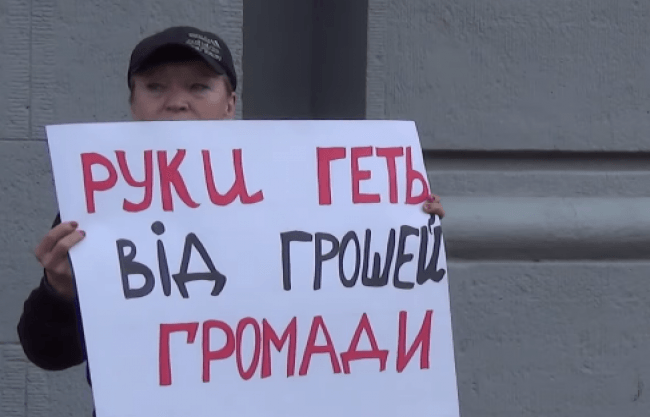 РУКИ ГЕТЬ
ВІД ГРОШЕЙ
ГРОМАДИ